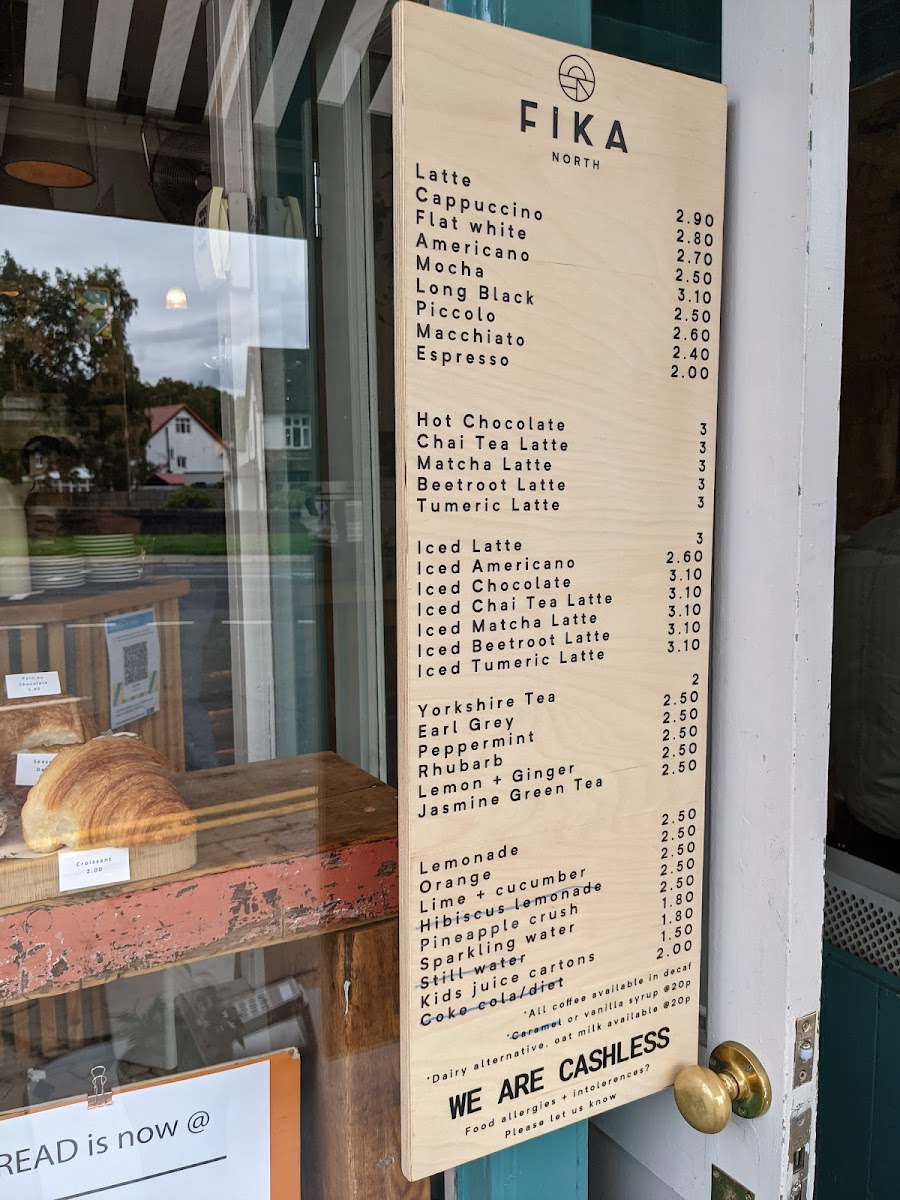 FIKA
NORTH
Latte 2.90
Cappuccino 2.80
Flat white 2.70
Americano 2.50
Mocha 3.10
Long Black 2.50
Piccolo 2.60
Macchiato 2.40
Espresso 2.00
Hot Chocolate 3
Chai Tea Latte 3
Matcha Latte 3
Beetroot Latte 3
Tumeric Latte 3
Iced Latte 3
Iced Americano 2.60
Iced Chocolate 3.10
Iced Chai Tea Latte 3.10
Iced Matcha Latte 3.10
Iced Beetroot Latte 3.10
Iced Tumeric Latte 3.10
Yorkshire Tea 2
Earl Grey 2.50
Peppermint 2.50
Rhubarb 2.50
Lemon + Ginger 2.50
Jasmine Green Tea 2.50
Lemonade 2.50
Orange 2.50
Lime + cucumber 2.50
Hibiscus lemonade 2.50
Pineapple crush 2.50
Sparkling water 1.80
Still water 1.80
Kids juice cartons 1.50
Coke cola/diet 2.00
*All coffee available in decaf
*Caramel or vanilla syrup @20p
*Dairy alternative, oat milk available @20p
WE ARE CASHLESS
Food allergies + intolerences?
Please let us know
Pain au
Chocolate
Croissant
2.00
READ is now @